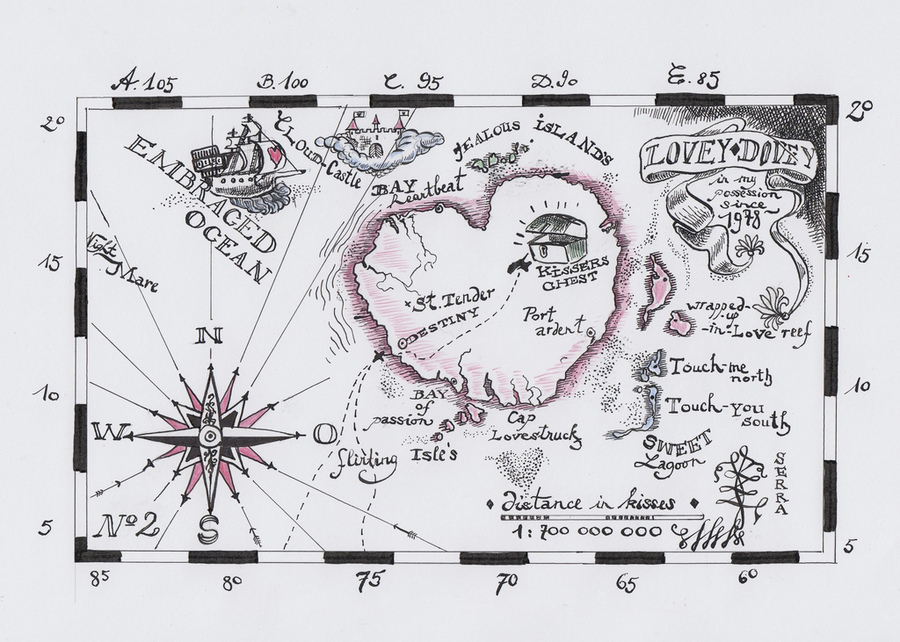 A. 105
B. 100
C. 95
D. 90
E. 85
20
20
EMBRACED
OCEAN
CLOUD
Castle
BAY
heartbeat
JEALOUS ISLANDS
LOVEY-DOVEY
in my
possession
since
1978
15
15
Night
Mare
KiSSERS
CHEST
St. Tender
DESTINY
Port
ardent
wrapped-
-up
-in-Love reef
N
W
O
S
10
10
Touch-me
north
Touch-you
south
BAY
of
passion
flirting
Isle's
Cap
Lovestruck
SWEET
Lagoon
SERRA
distance in kisses
1:700 000 000
Nº2
5
5
85
80
75
70
65
60